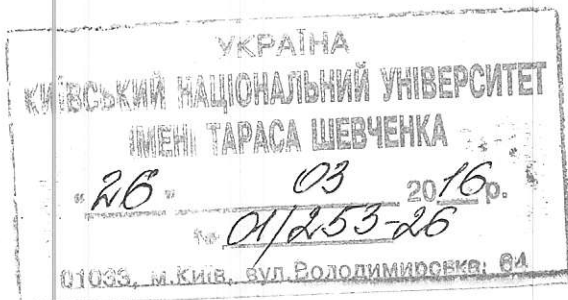 УКРАЇНА
КИЇВСЬКИЙ НАЦІОНАЛЬНИЙ УНІВЕРСИТЕТ
ІМЕНІ ТАРАСА ШЕВЧЕНКА
"26" 03 2016 р.
№ 01/253-26
01033, м.Київ, вул.Володимирська, 64